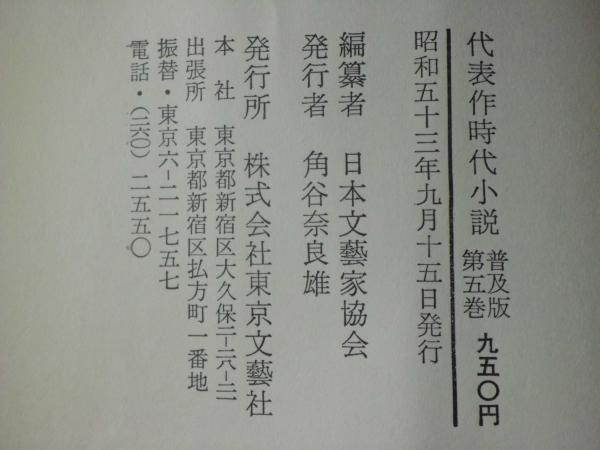 代表作時代小説 普及版 第五巻 九五〇円
昭和五十三年九月十五日発行
編纂者 日本文藝家協会
発行者 角谷奈良雄
発行所 株式会社東京文藝社
本社 東京都新宿区大久保二-六-二
出張所 東京都新宿区払方町一番地
振替・東京六-二一七五七
電話・(二六〇)二五五〇